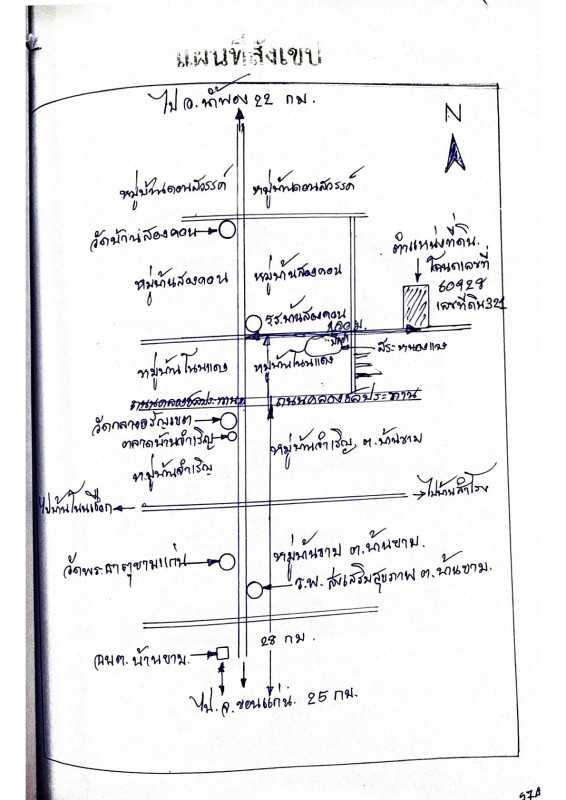 แผนที่สังเขป
ไป อ.น้ำพอง 22 กม.
N
หมู่บ้านดอนสวรรค์
หมู่บ้านดอนสวรรค์
วัดบ้านสองคอน
หมู่บ้านสองคอน
หมู่บ้านสองคอน
ตำแหน่งที่ดิน.
โฉนดเลขที่
60928
เลขที่ดิน 321
ร.ร.บ้านสองคอน
ม.
สระหนองแวง
หมู่บ้านโนนแดง
หมู่บ้านโนนแดง
ถนนคลองชลประทาน
ถนนคลองชลประทาน
วัดกลางอรัญเขต
ตลาดบ้านสำเริญ
หมู่บ้านสำเริญ ต.บ้านขาม
หมู่บ้านสำเริญ
ไปบ้านโนนเชือก
ไปบ้านสำโรง
หมู่บ้านขาม ต.บ้านขาม.
วัดพระธาตุขามแก่น
ร.พ. ส่งเสริมสุขภาพ ต.บ้านขาม.
28 กม.
อบต.บ้านขาม.
ไป.จ.ขอนแก่น. 25 กม.